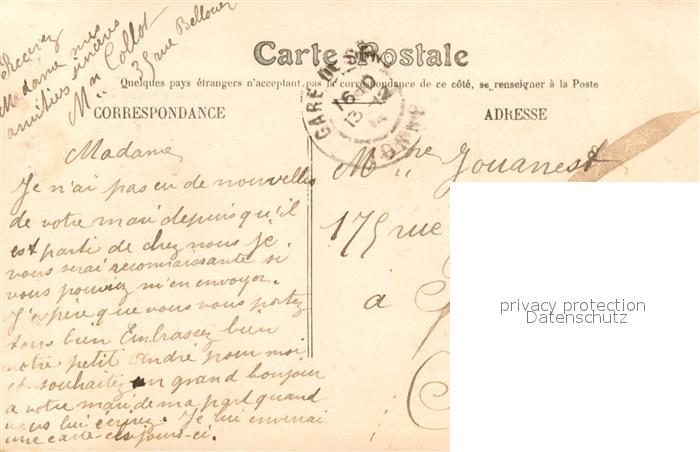 Recevez
Madame mes
amitiés sincères
Mme Collot
35 rue Bellouer
Carte Postale
Quelques pays étrangers n'acceptant pas la correspondance de ce côté, se renseigner à la Poste
CORRESPONDANCE
ADRESSE
GARE DE
16
13 12
Madame
Je n'ai pas eu de nouvelles
de votre mari depuis qu'il
est parti de chez nous je
vous serai reconnaissante si
vous pouviez m'en envoyer.
J'espère que vous vous portez
tous bien Embrassez bien
notre petit André pour moi
et souhaitez un grand bonjour
a votre mari de ma part quand
vous lui écrirez. Je lui enverrai
une carte ces jours-ci.
Mme Jouanest
175 rue
a
privacy protection
Datenschutz